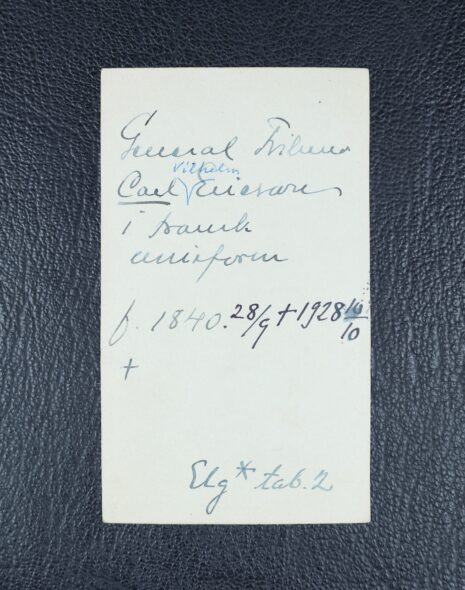 General Friherre
Vilhelm
Carl Ericson
i dansk
uniform
f. 1840. 28/9 + 1928 10/10
+
Elg * tab. 2